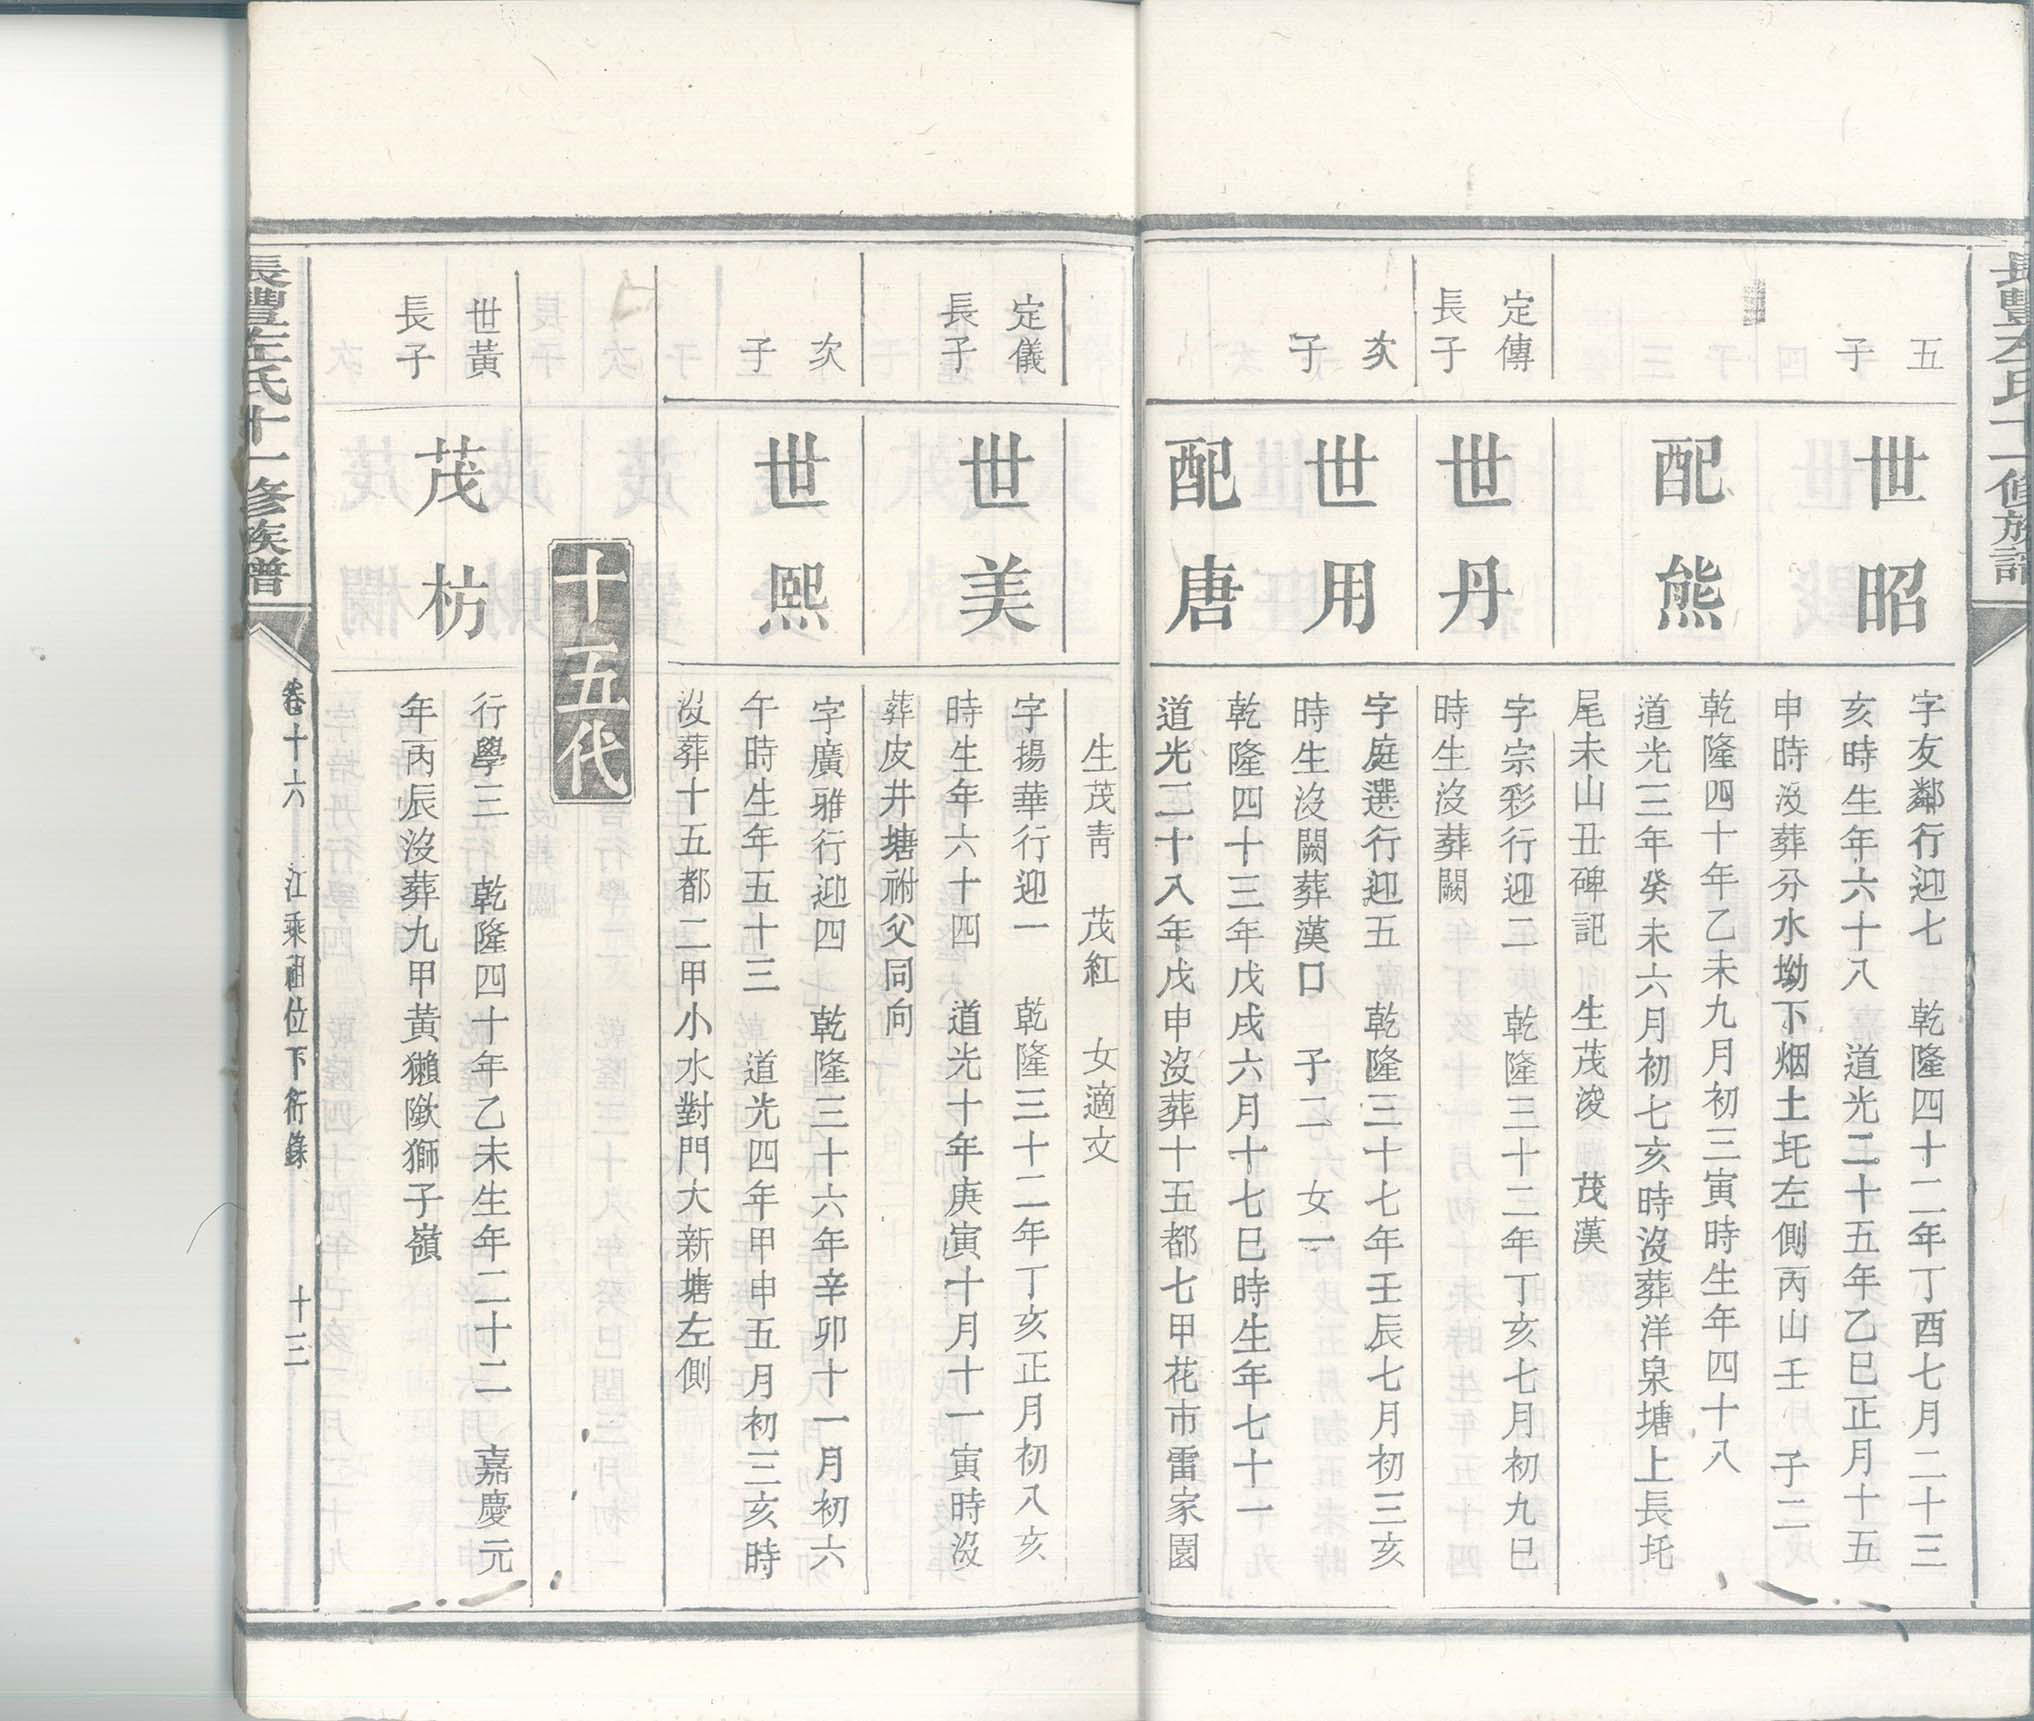 五
子
世昭
字友鄰行迎七　乾隆四十二年丁酉七月二十三
亥時生年六十八　道光二十五年乙巳正月十五
申時沒葬分水坳下烟土圫左側丙山壬　子二
配熊
乾隆四十年乙未九月初三寅時生年四十八
道光三年癸未六月初七亥時沒葬洋泉塘上長圫
尾未山丑碑記　生茂浚　茂漢
定傳
長子
世丹
字宗彩行迎二　乾隆三十二年丁亥七月初九巳
時生沒葬闕
次
子
世用
字庭選行迎五　乾隆三十七年壬辰七月初三亥
時生沒闕葬漢口　子二　女一
配唐
乾隆四十三年戊戌六月十七巳時生年七十一
道光二十八年戊申沒葬十五都七甲花市雷家園
生茂靑　茂紅　女適文
定儀
長子
世美
字揚華行迎一　乾隆三十二年丁亥正月初八亥
時生年六十四　道光十年庚寅十月十一寅時沒
葬皮井塘祔父同向
次
子
世熙
字廣雅行迎四　乾隆三十六年辛卯十一月初六
午時生年五十三　道光四年甲申五月初三亥時
沒葬十五都二甲小水對門大新塘左側
十五代
世黃
長子
茂枋
行學三　乾隆四十年乙未生年二十二　嘉慶元
年丙辰沒葬九甲黃獺㘓獅子嶺
長豐左氏十一修族譜
卷十六　江乘祖位下衍錄　十三